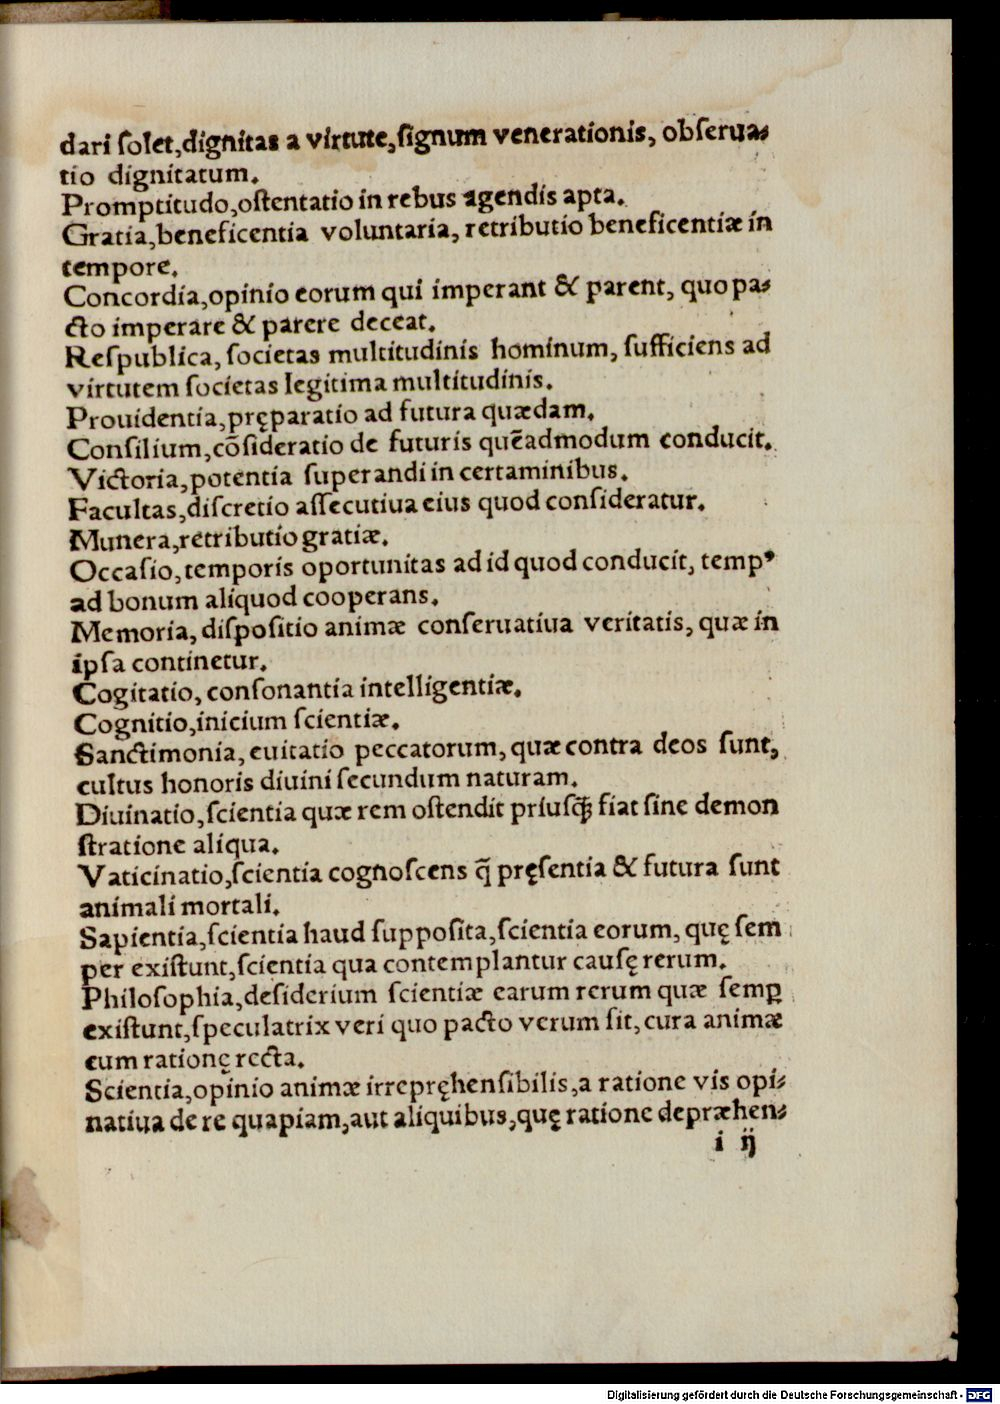 dari ſolet,dignitas a virtute,ſignum venerationis, obſerua⸗
tio dignitatum.
Promptitudo,oſtentatio in rebus agendis apta.
Gratia,beneficentia voluntaria, retributio beneficentiæ in
tempore.
Concordia,opinio eorum qui imperant & parent, quo pa⸗
cto imperare & parere deceat.
Reſpublica, ſocietas multitudinis hominum, ſufficiens ad
virtutem ſocietas legitima multitudinis.
Prouidentia,pręparatio ad futura quædam.
Conſilium,cõſideratio de futuris quẽadmodum conducit.
Victoria,potentia ſuperandi in certaminibus.
Facultas,diſcretio aſſecutiua eius quod conſideratur.
Munera,retributio gratiæ.
Occaſio,temporis oportunitas ad id quod conducit, tempꝰ
ad bonum aliquod cooperans.
Memoria, diſpoſitio animæ conſeruatiua veritatis, quæ in
ipſa continetur.
Cogitatio, conſonantia intelligentiæ.
Cognitio,inicium ſcientiæ.
Sanctimonia, euitatio peccatorum, quæ contra deos ſunt,
cultus honoris diuini ſecundum naturam.
Diuinatio,ſcientia quæ rem oſtendit priuſqꝫ̃ fiat ſine demon
ſtratione aliqua.
Vaticinatio,ſcientia cognoſcens q̃ pręſentia & futura ſunt
animali mortali.
Sapientia,ſcientia haud ſuppoſita,ſcientia eorum, quę ſem
per exiſtunt,ſcientia qua contemplantur cauſę rerum.
Philoſophia,deſiderium ſcientiæ earum rerum quæ ſemꝑ
exiſtunt,ſpeculatrix veri quo pacto verum ſit, cura animæ
cum rationę recta.
Scientia,opinio animæ irrepręhenſibilis,a ratione vis opi⸗
natiua de re quapiam,aut aliquibus,quę ratione depræhen⸗
i ij
Digitalisierung gefördert durch die Deutsche Forschungsgemeinschaft - DFG